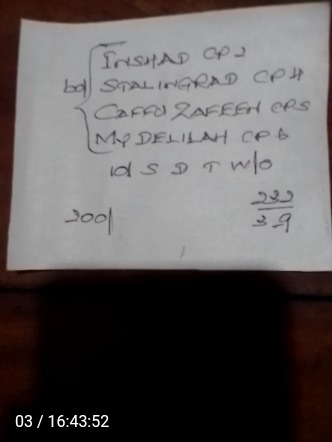 INSHAD CP2
bd STALINGRAD CP4
CAFFU ZAFEEH CP5
MY DELILAH CP6
10/ S D T W/O
232
200/ 39
03 / 16:43:52